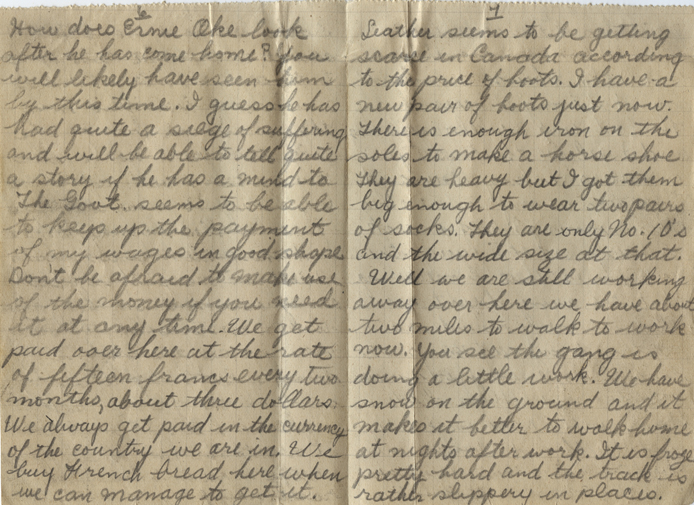 6
How does Ernie Oke look
after he has come home? You
will likely have seen him
by this time. I guess he has
had quite a siege of suffering
and will be able to tell quite
a story if he has a mind to
The Govt. seems to be able
to keep up the payment
of my wages in good shape
Don't be afraid to make use
of the money if you need
it at any time. We get
paid over here at the rate
of fifteen francs every two
months, about three dollars.
We always get paid in the currency
of the country we are in. We
buy French bread here when
we can manage to get it.
7
Leather seems to be getting
scarse in Canada according
to the price of boots. I have a
new pair of boots just now.
There is enough iron on the
soles to make a horse shoe
They are heavy but I got them
big enough to wear two pairs
of socks. They are only No. 10's
and the wide size at that.
Well we are still working
away over here we have about
two miles to walk to work
now. You see the gang is
doing a little work. We have
snow on the ground and it
makes it better to walk home
at nights after work. It is froze
pretty hard and the track is
rather slippery in places.